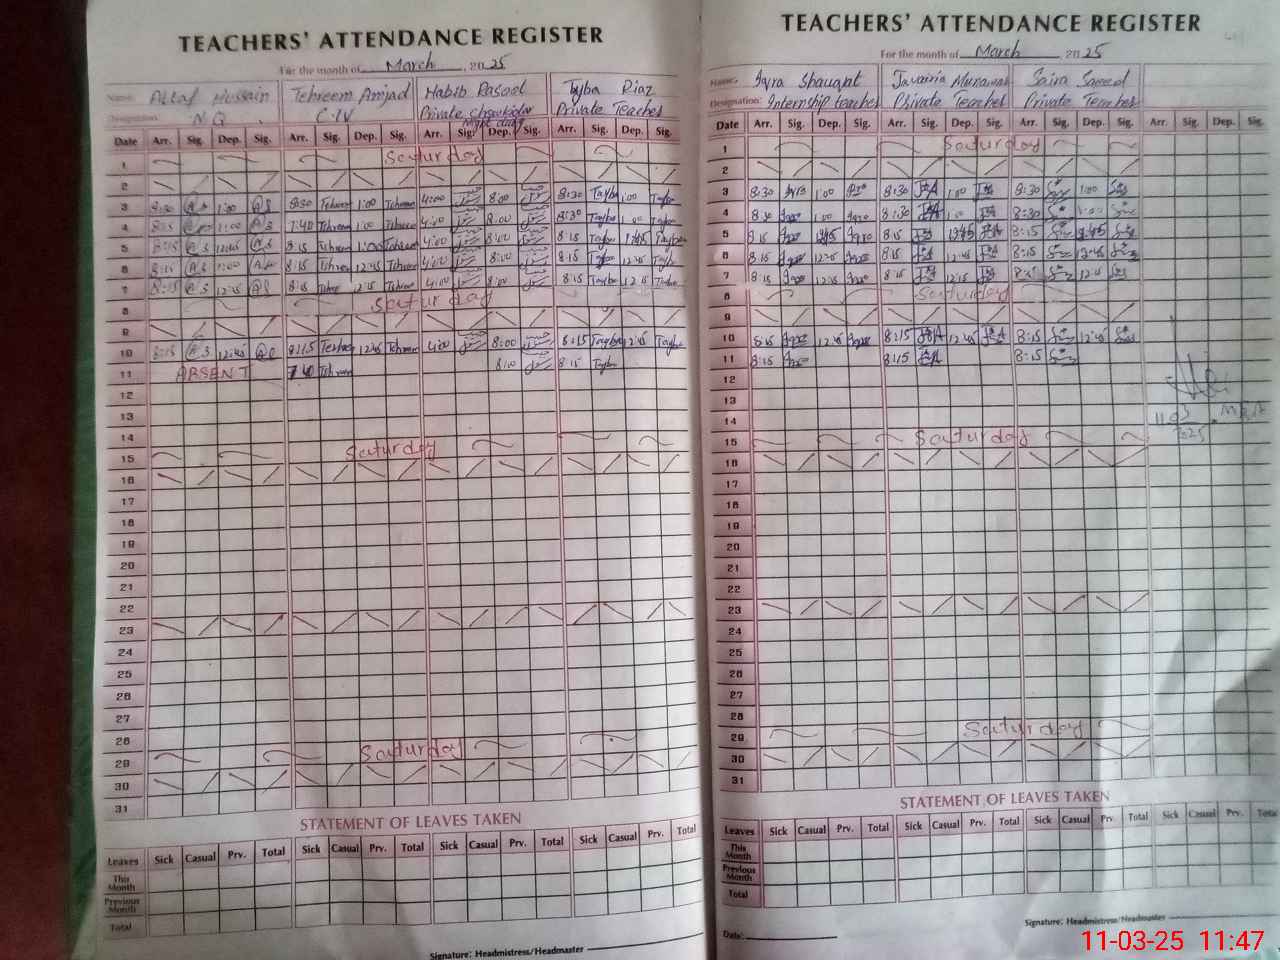 TEACHERS' ATTENDANCE REGISTER
For the month of March, 2025
Name: Altaf Hussain Tehreem Amjad Habib Rasool Tyba Riaz
Designation: N.Q. C-IV Private Chowkidar Private Teacher
Night duty
Date Arr. Sig. Dep. Sig. Arr. Sig. Dep. Sig. Arr. Sig. Dep. Sig. Arr. Sig. Dep. Sig.
1 Saturday
2
3 8:30 1:00 8:30 Tehreem 1:00 Tehreem 4:00 8:00 8:30 Tayba 1:00 Tayba
4 8:15 1:00 7:40 Tehreem 1:00 Tehreem 4:00 8:00 8:30 Tayba 1:00 Tayba
5 8:15 12:45 8:15 Tehreem 1:00 Tehreem 4:00 8:00 8:15 Tayba 12:45 Tayba
6 8:15 1:00 8:15 Tehreem 12:45 Tehreem 4:00 8:00 8:15 Tayba 12:45 Tayba
7 8:15 12:45 8:15 Tehreem 12:15 Tehreem 4:00 8:00 8:15 Tayba 12:15 Tayba
8 Saturday
9
10 8:15 12:45 8:15 Tehreem 12:45 Tehreem 4:00 8:00 8:15 Tayba 12:45 Tayba
11 ABSENT 7:40 Tehreem 8:00 8:15 Tayba
12
13
14
15 Saturday
16
17
18
19
20
21
22
23
24
25
26
27
28
29 Saturday
30
31
STATEMENT OF LEAVES TAKEN
Leaves Sick Casual Prv. Total Sick Casual Prv. Total Sick Casual Prv. Total Sick Casual Prv. Total
This Month
Previous Month
Total
Signature: Headmistress/Headmaster
TEACHERS' ATTENDANCE REGISTER
For the month of March, 2025
Name: Iqra Shauqat Javairia Munawar Saira Saeed
Designation: Internship teacher Private Teacher Private Teacher
Date Arr. Sig. Dep. Sig. Arr. Sig. Dep. Sig. Arr. Sig. Dep. Sig. Arr. Sig. Dep. Sig.
1 Saturday
2
3 8:30 Iqra 1:00 Iqra 8:30 1:00 8:30 1:00
4 8:30 Iqra 1:00 Iqra 8:30 1:00 8:30 1:00
5 8:15 Iqra 12:45 Iqra 8:15 12:45 8:15 12:45
6 8:15 Iqra 12:45 Iqra 8:15 12:45 8:15 12:45
7 8:15 Iqra 12:15 Iqra 8:15 12:15 8:15 12:15
8 Saturday
9
10 8:15 Iqra 12:45 Iqra 8:15 12:45 8:15 12:45
11 8:15 Iqra 8:15 8:15
12
13
14
15 Saturday
16
17
18
19
20
21
22
23
24
25
26
27
28
29 Saturday
30
31
11-03-2025 MEA
STATEMENT OF LEAVES TAKEN
Leaves Sick Casual Prv. Total Sick Casual Prv. Total Sick Casual Prv. Total Sick Casual Prv. Total
This Month
Previous Month
Total
Signature: Headmistress/Headmaster
Date:
11-03-25 11:47